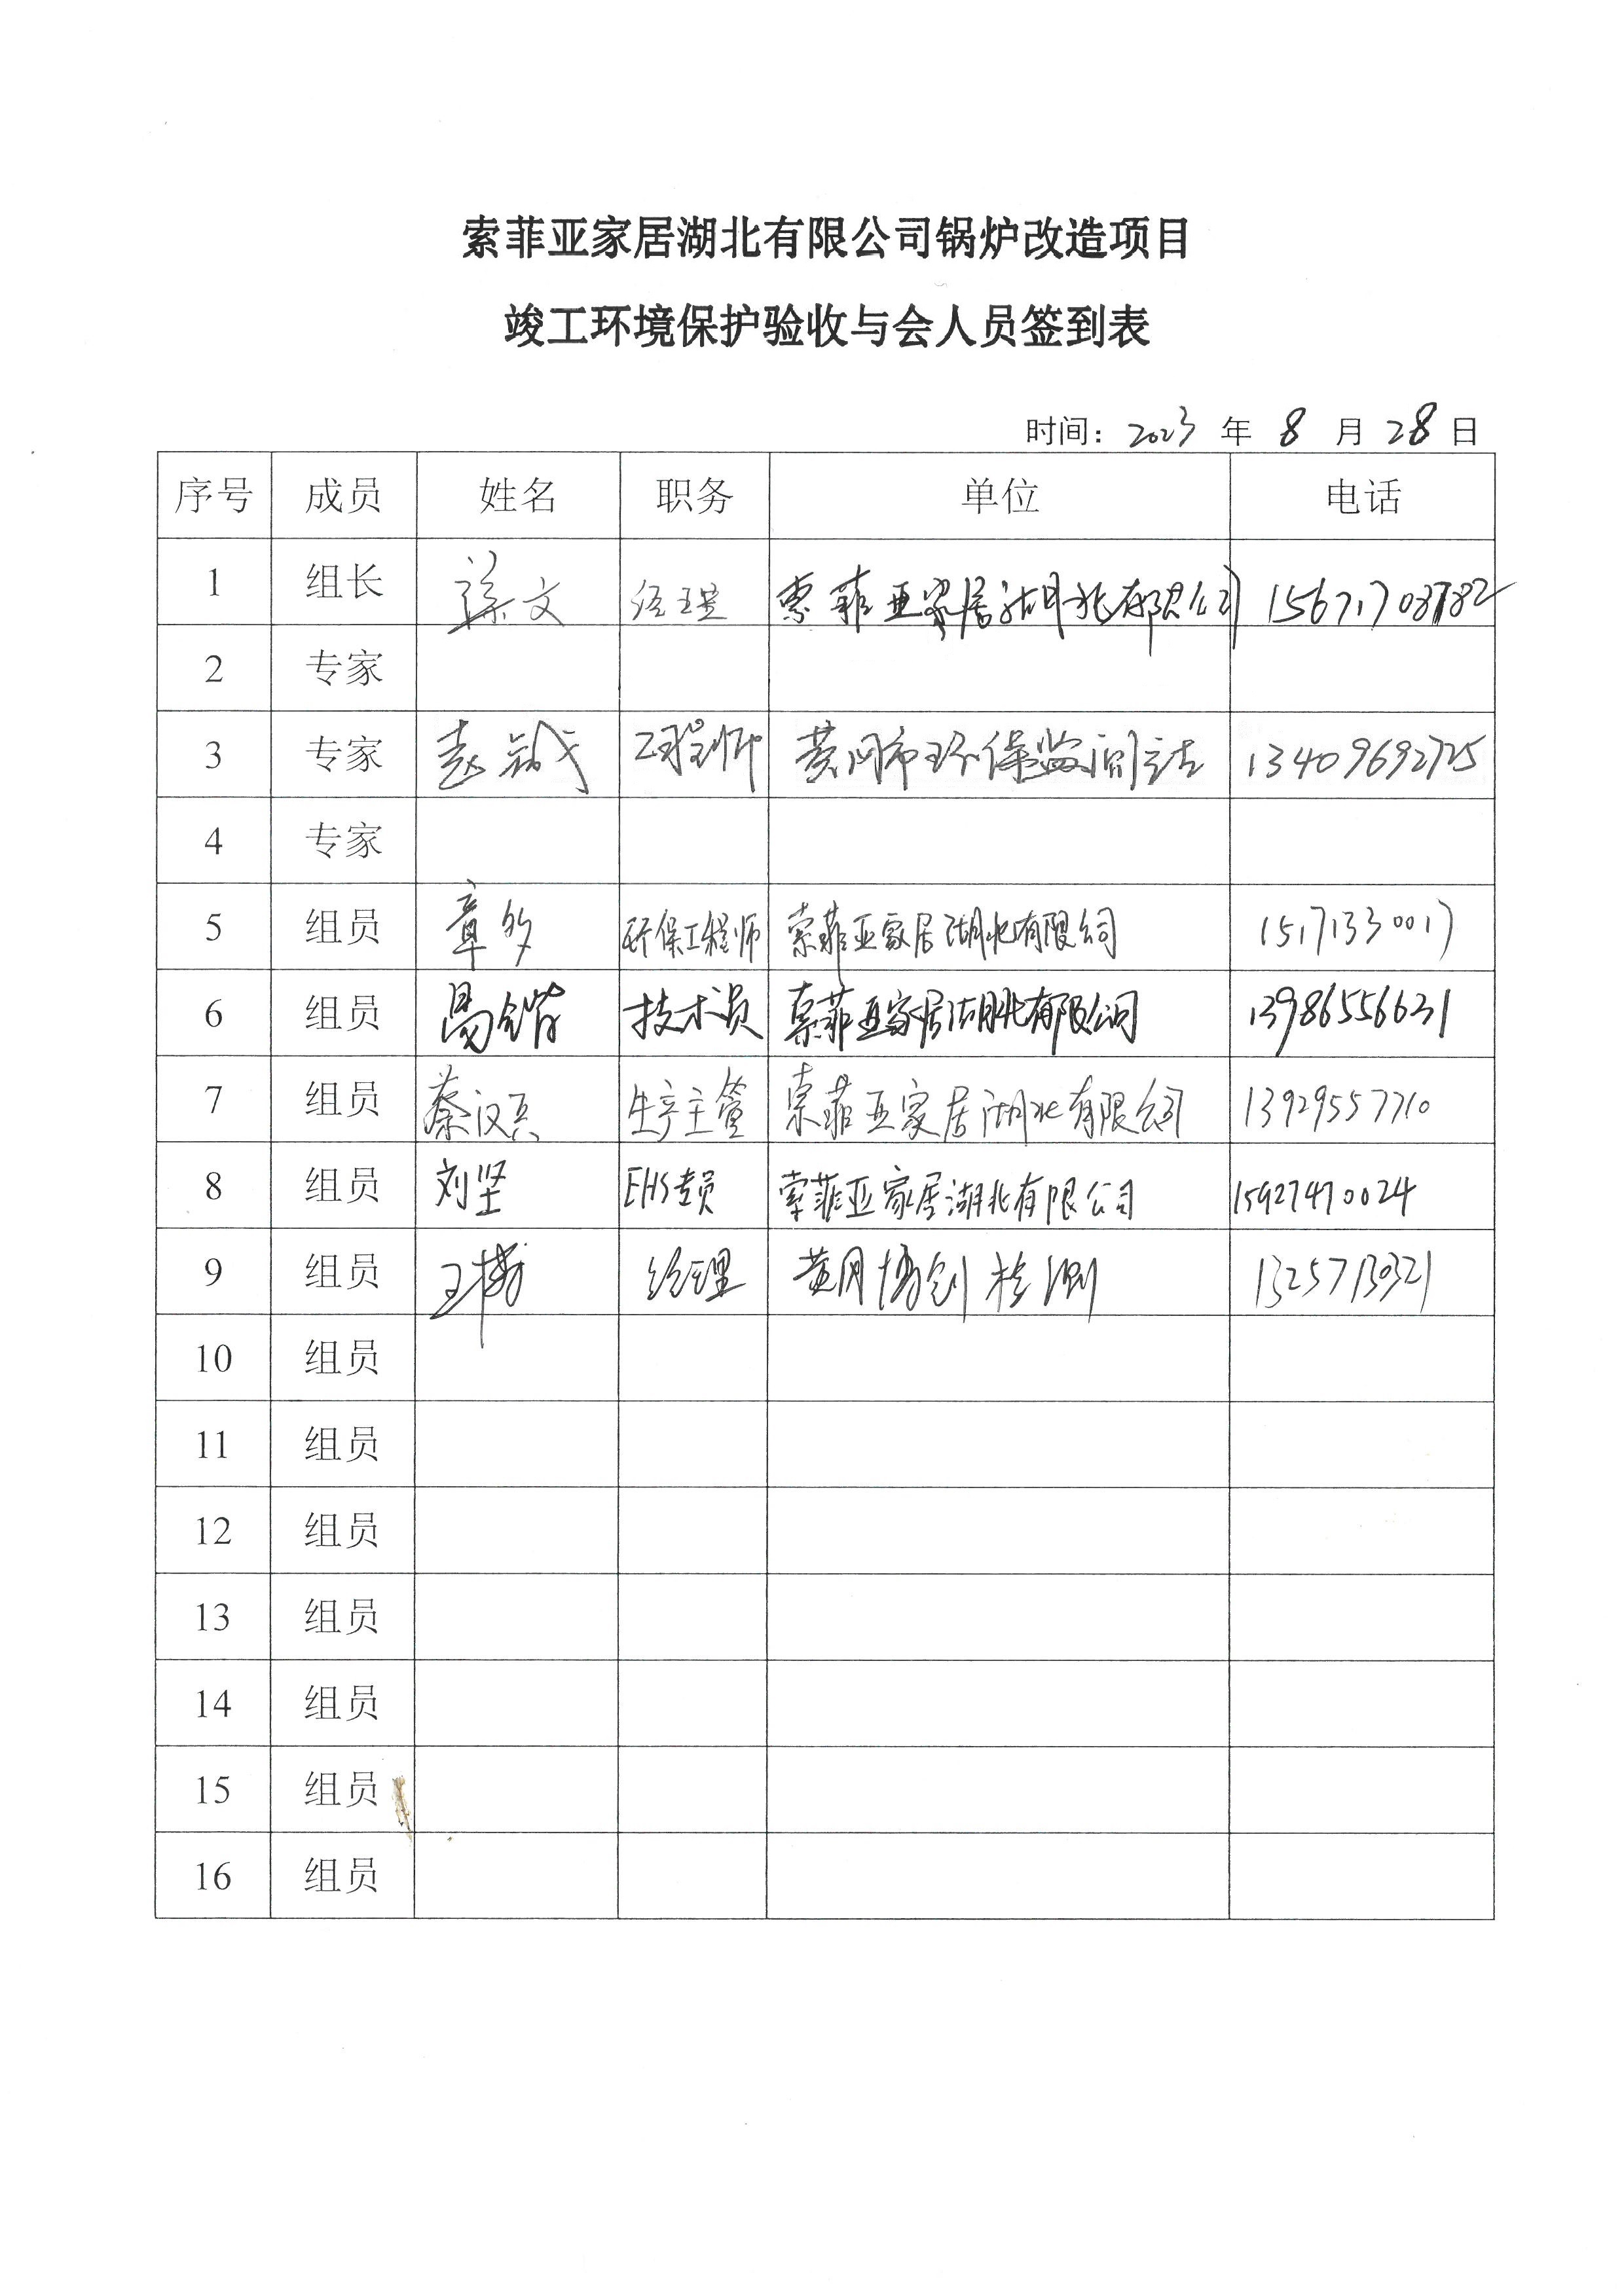 索菲亚家居湖北有限公司锅炉改造项目
竣工环境保护验收与会人员签到表
时间：2023 年 8 月 28 日
序号 成员 姓名 职务 单位 电话
1 组长 文 经理 索菲亚家居湖北有限公司
2 专家
3 专家 工程师 黄冈市环保监测站 13409692725
4 专家
5 组员 章 环保工程师 索菲亚家居湖北有限公司 15171330017
6 组员 技术员 索菲亚家居湖北有限公司 13986556631
7 组员 蔡汉兵 生产主管 索菲亚家居湖北有限公司 13929557710
8 组员 刘坚 EHS专员 索菲亚家居湖北有限公司 15927470024
9 组员 王博 经理 黄冈博创检测 13257130321
10 组员
11 组员
12 组员
13 组员
14 组员
15 组员
16 组员